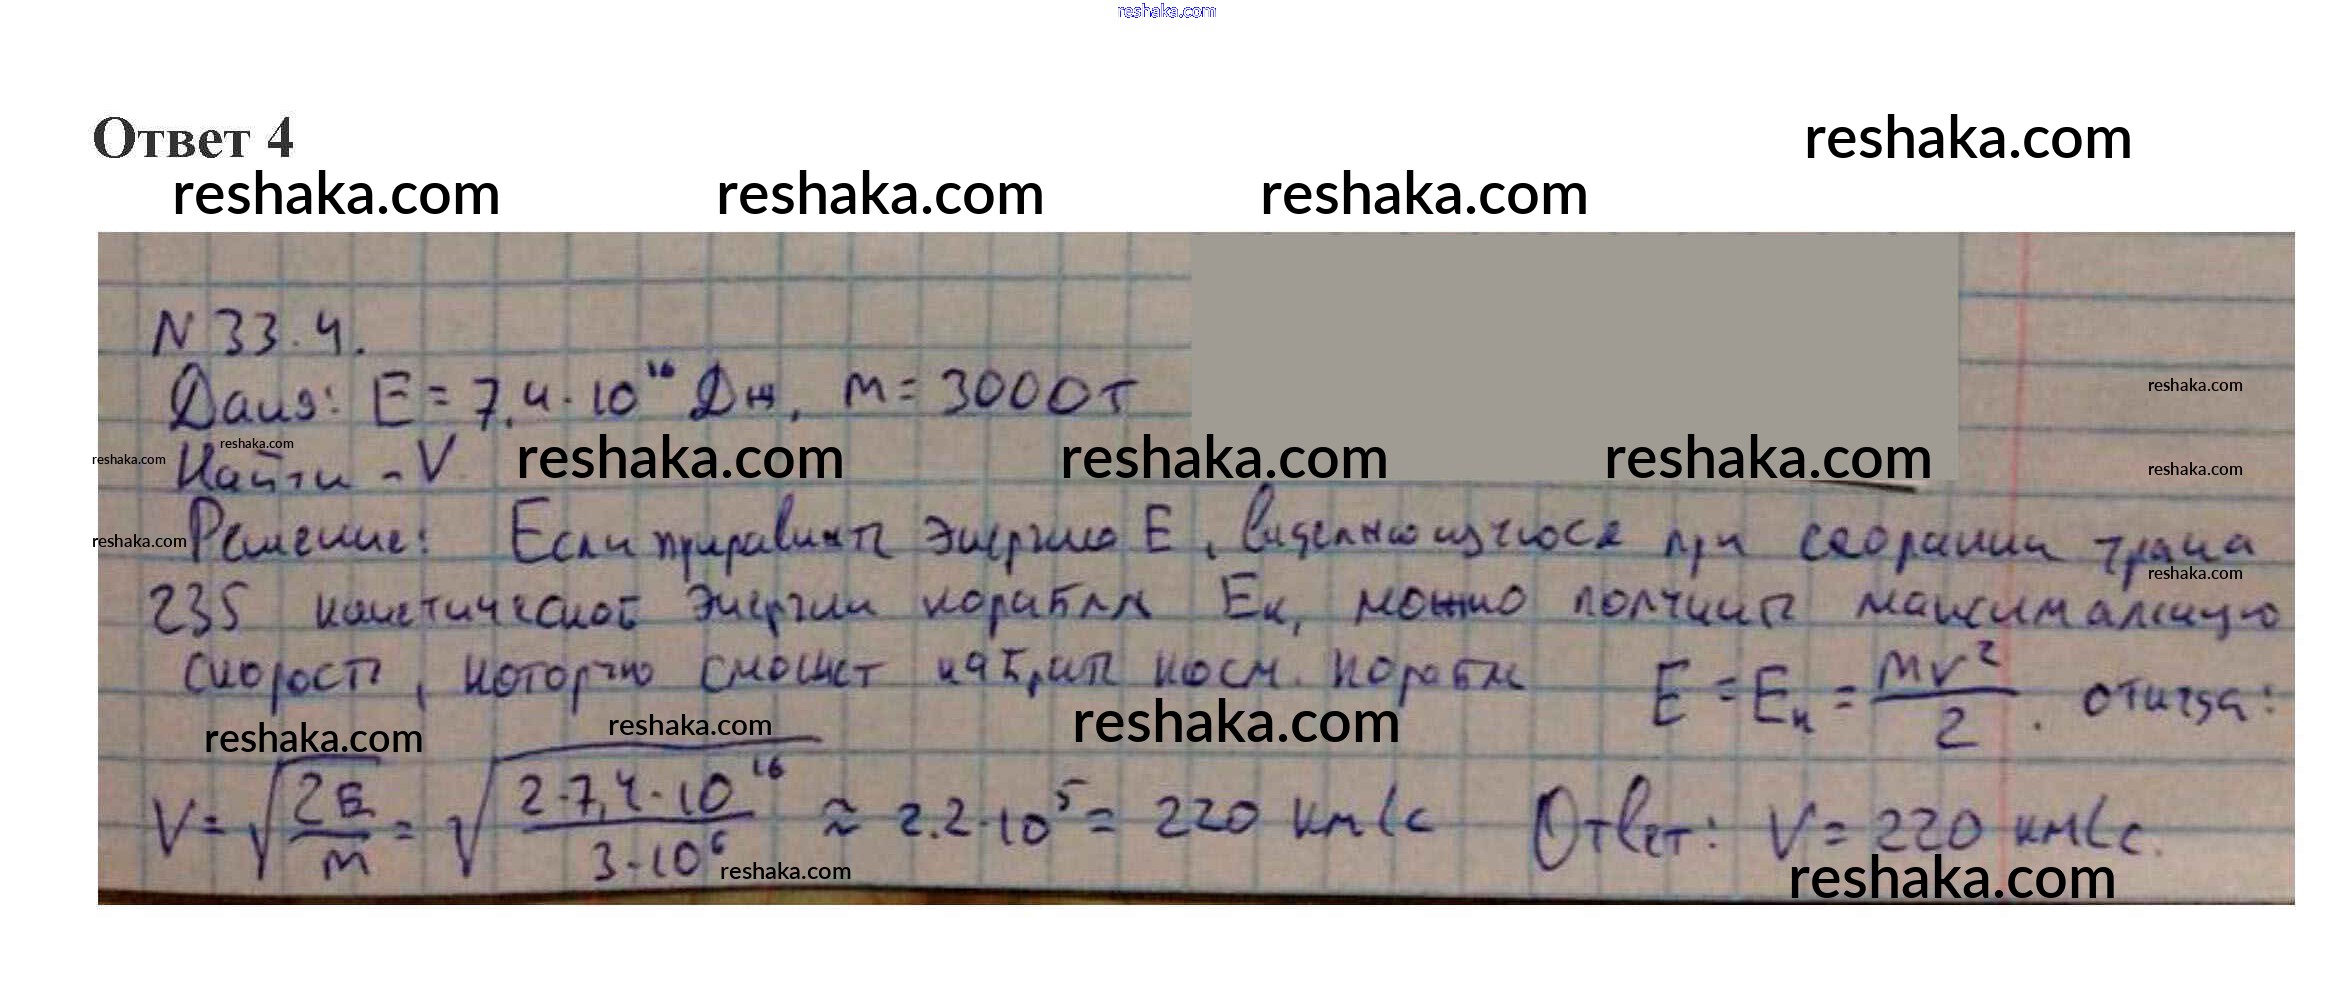 reshaka.com
Ответ 4
reshaka.com
reshaka.com reshaka.com reshaka.com
N 33.4.
Дано: E = 7,4·10¹⁶ Дж, m = 3000т
reshaka.com
reshaka.com
reshaka.com
Найти - V
reshaka.com reshaka.com reshaka.com
reshaka.com
Решение: Если приравнять энергию E, выделяющуюся при сгорании урана
reshaka.com
reshaka.com
235 кинетической энергии корабля Eк, можно получить максимальную
скорость, которую сможет набрать косм. корабль E = Eк = mv²/2. откуда:
reshaka.com reshaka.com reshaka.com
V = √(2E/m) = √(2·7,4·10¹⁶/3·10⁶) ≈ 2.2·10⁵ = 220 км/с Ответ: V = 220 км/с.
reshaka.com reshaka.com